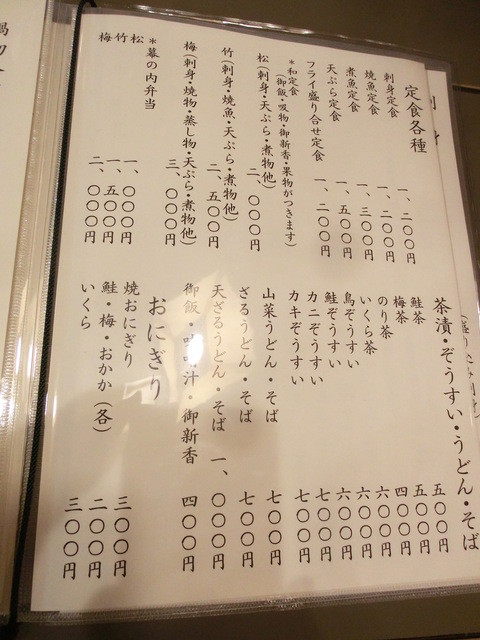 定食各種
刺身定食 一、二〇〇円
焼魚定食 一、二〇〇円
煮魚定食 一、三〇〇円
天ぷら定食 一、五〇〇円
フライ盛り合せ定食 一、二〇〇円
*和定食
(御飯・吸物・御新香・果物がつきます)
松(刺身・天ぷら・煮物他) 二、〇〇〇円
竹(刺身・焼魚・天ぷら・煮物他) 二、五〇〇円
梅(刺身・焼物・蒸し物・天ぷら・煮物他) 三、〇〇〇円
*幕の内弁当
松 一、〇〇〇円
竹 一、五〇〇円
梅 二、〇〇〇円
茶漬・ぞうすい・うどん・そば
鮭茶 五〇〇円
梅茶 五〇〇円
のり茶 四〇〇円
いくら茶 六〇〇円
鳥ぞうすい 六〇〇円
鮭ぞうすい 六〇〇円
カニぞうすい 七〇〇円
カキぞうすい 七〇〇円
山菜うどん・そば 七〇〇円
ざるうどん・そば 七〇〇円
天ざるうどん・そば 一、〇〇〇円
御飯・味噌汁・御新香 四〇〇円
おにぎり
焼おにぎり 三〇〇円
鮭・梅・おかか(各) 二〇〇円
いくら 三〇〇円